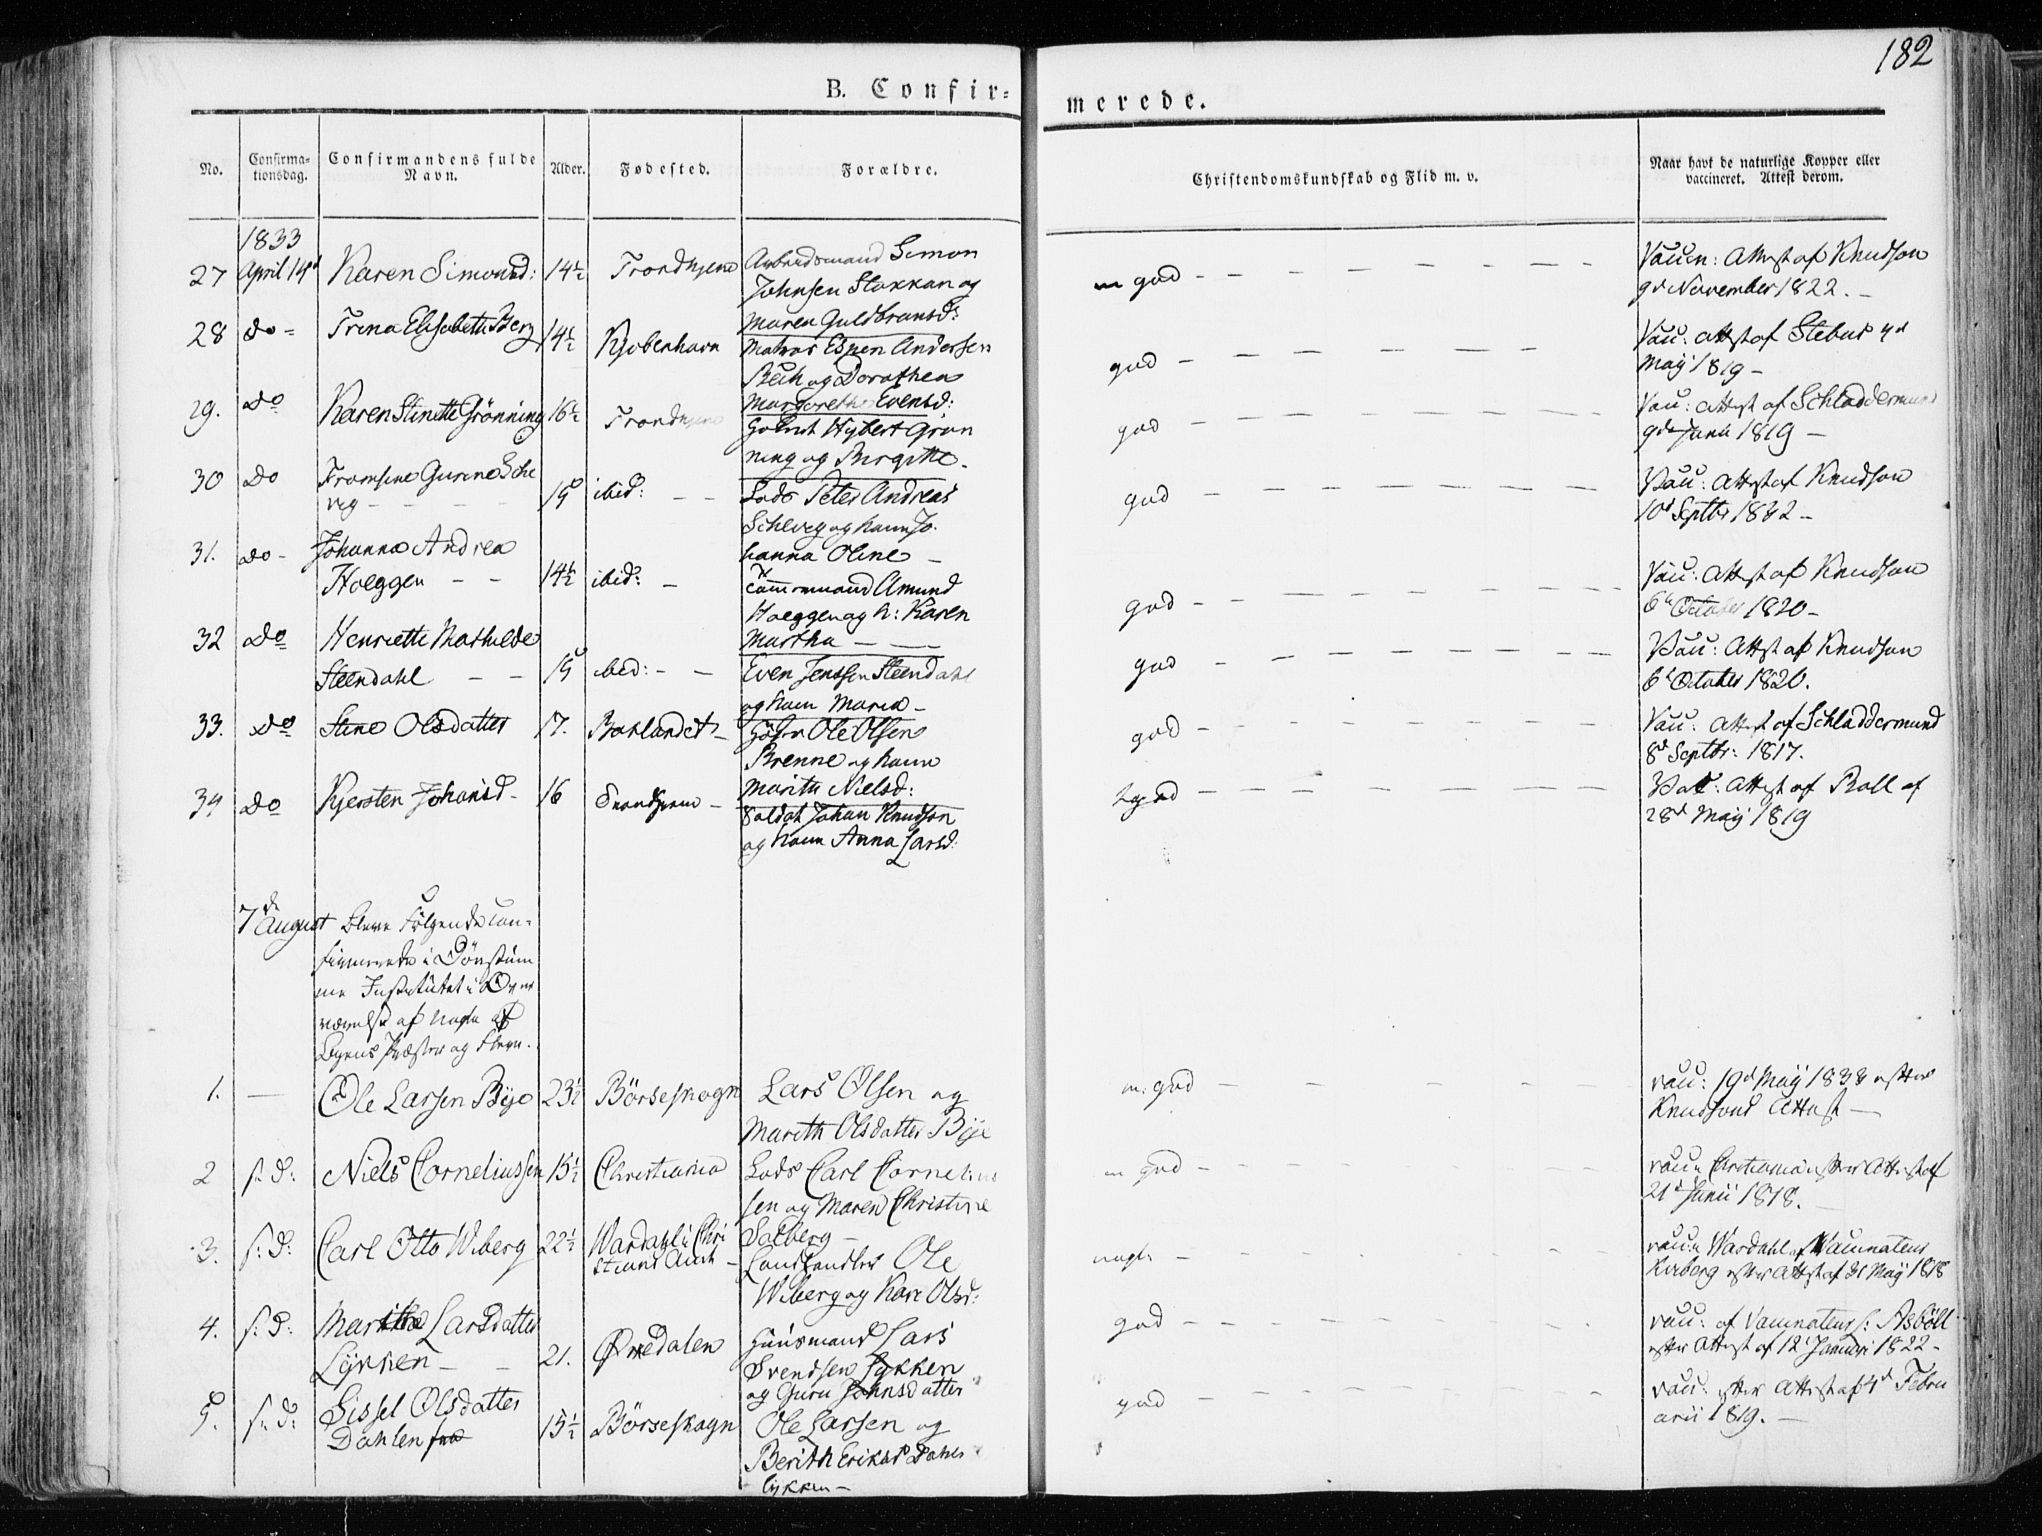 182
B. Confir-
merede.
No.
Confirma-
tionsdag.
Confirmandens fulde
Navn.
Alder.
Fødested.
Forældre.
Christendomskundskab og Flid m. v.
Naar havt de naturlige Kopper eller
vaccineret. Attest derom.
1833
27 April 14d Karen Simonsd: 14½ Trondhjem Arbeidsmand Simon
Johnsen Stokkan og
Maren Guldbransd:
m god - - - - - - -
Vacin: Attest af Knudson
9d November 1822. -
28 do - Trina Elisabeth Berg 14½ Kjøbenhavn Matros Espen Andersen
Bech og Dorothea
Margarethe Evensd:
god - - - - - - -
Vacc: attest af Stebus 4d
Maij 1819 -
29. do Karen Stinette Grønning 16½ Trondhjem Hybert Grøn
ning og Birgitte.
god - - - - - - -
Vac: attest af Schladdermund
9de Junii 1819 -
30 do Tromsine Gurine Sche
vig - - - 19 ibid: - - Lods Peter Andreas
Schevig og kone Jo-
hanna Oline -
god - - - - - - -
Vacc: Attest af Knudson
10d Septbr 1822 -
31. do - Johanna Andrea
Hoeggen - - 14½ ibid: - Tømmermand Amund
Hoeggen og k: Karen
Martha - -
god - - - - - - -
Vacc: Attest af Knudson
6te October 1820 -
32 do Henriette Mathilde
Steendahl - - 19 ibid: - - Even Jenssen Steendahl
og kone Maria -
god - - - - - - -
Vacc: Attest af Knudson
6d October 1820.
33. do Stine Olsdatter 17. Baklandet - Ole Olsen
Brenne og kone
Marith Nielsd:
god - - - - - - -
Vacc: Attest af Schladdermund
8d Septbr: 1817.
34 do Kjersten Johansd - 16 Trondhjem - Soldat Johan Knudson
og kone Anna Larsd:
god - - - - - - -
Vacc: Attest af Roll af
28d Maij 1819
7de August bleve Følgende con-
firmerede i Døvstum
me Institutet i Over
værelse af nogle af
Byens Præster og Flere.
1. - Ole Larsen Bye 23½ Børseskogn Lars Olsen og
Marith Olsdatter Bye
m: god - - - - - - -
vacc: 19d Maij 1833 efter
Knudsons Attest -
2 s: d: Niels Corneliussen 15½ Christiania Lods Carl Cornelius
sen og Maren Christine
Solberg -
m god - - - - - - -
vacc: Christiania efter Attest af
21d Junii 1818.
3. s: d: Carl Otto Wiberg 22½ Wardahl i Chri
stians Amt - Landhandler Ole
Wiberg og Kari Olsd:
nogle - - - - - -
vacc: Wardahl af Vaccinateur
Kirberg efter Attest af 31 Maij 1818
4. s: d: Martha Larsdatter
Lykken - - 21. Ørkedalen Huusmand Lars
Svendsen Lykken
og Guru Johnsdatter
god - - - - - - -
vacc: af Vaccinateur S: Asbøll
efter Attest af 12d Januari 1822 -
5. s: d: Sissel Olsdatter
Dahlen 15½ Børseskogn Ole Larsen og
Berith Eriksd Dahls
lykken -
god - - - - - - -
vacc: efter Attest af 4d Febru
arii 1819. -